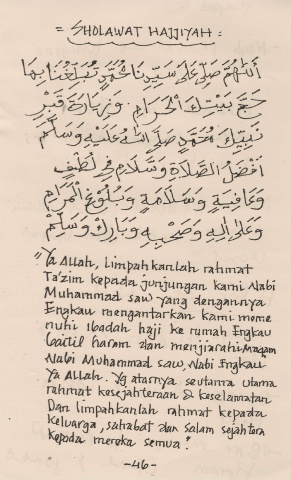 = SHOLAWAT HAJJIYAH =
اَللّٰهُمَّ صَلِّ عَلَى سَيِّدِنَا مُحَمَّدٍ تُبَلِّغُنَا بِهَا
حَجَّ بَيْتِكَ الْحَرَامِ . وَزِيَارَةَ قَبْرِ
نَبِيِّكَ مُحَمَّدٍ صَلَّى اللهُ عَلَيْهِ وَسَلَّمَ
اَفْضَلُ الصَّلَاةِ وَسَّلَامِ فِي لُطْفٍ
وَعَافِيَةٍ وَسَلَامَةٍ وَبُلُوْغِ الْمَرَامِ
وَعَلَى اٰلِهِ وَصَحْبِهِ وَبَارِكْ وَسَلِّمْ
"Ya Allah, limpahkanlah rahmat
Ta'zim kepada junjungan kami Nabi
Muhammad saw yang dengannya
Engkau mengantarkan kami meme
nuhi ibadah haji ke rumah Engkau
baitil haram dan menjiarahi Maqam
Nabi Muhammad saw, Nabi Engkau
Ya Allah. Yg atasnya seutama utama
rahmat kesejahteraan & keselamatan
Dan limpahkanlah rahmat kepada
keluarga, sahabat dan salam sejahtera
kepada mereka semua."
-46-